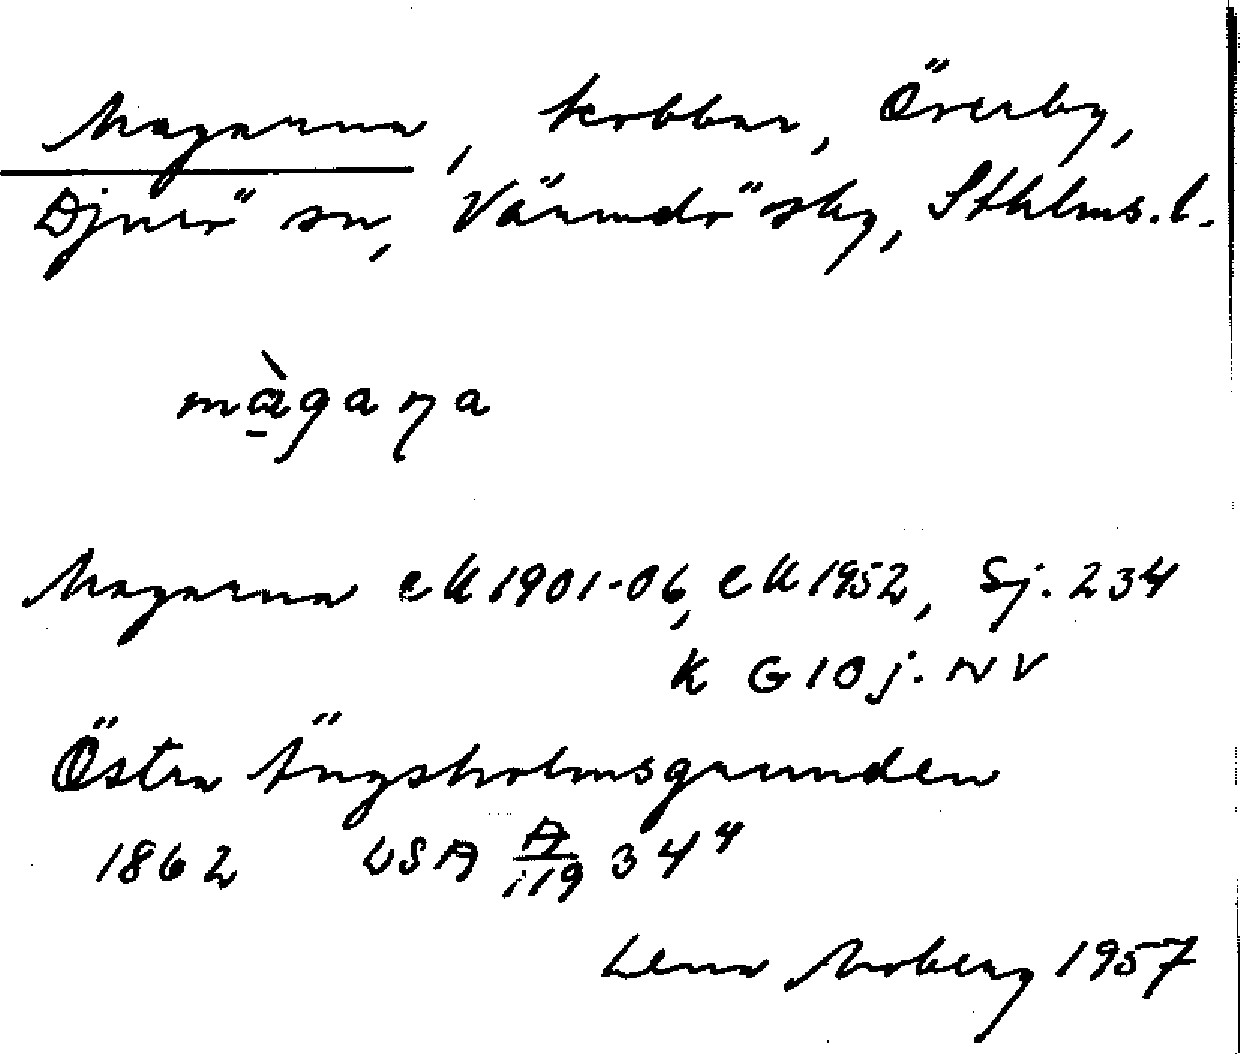 Magarna, kobbar, Överby,
Djurö sn, Värmdö sky, Sthlms. l.
màgaṇa
Magarna ek 1901-06, ek 1952, Sj. 234
K G 10 j. NV
Östra Ängsholmsgrunden
1862 LSA A/119 34⁴
Lena Moberg 1957